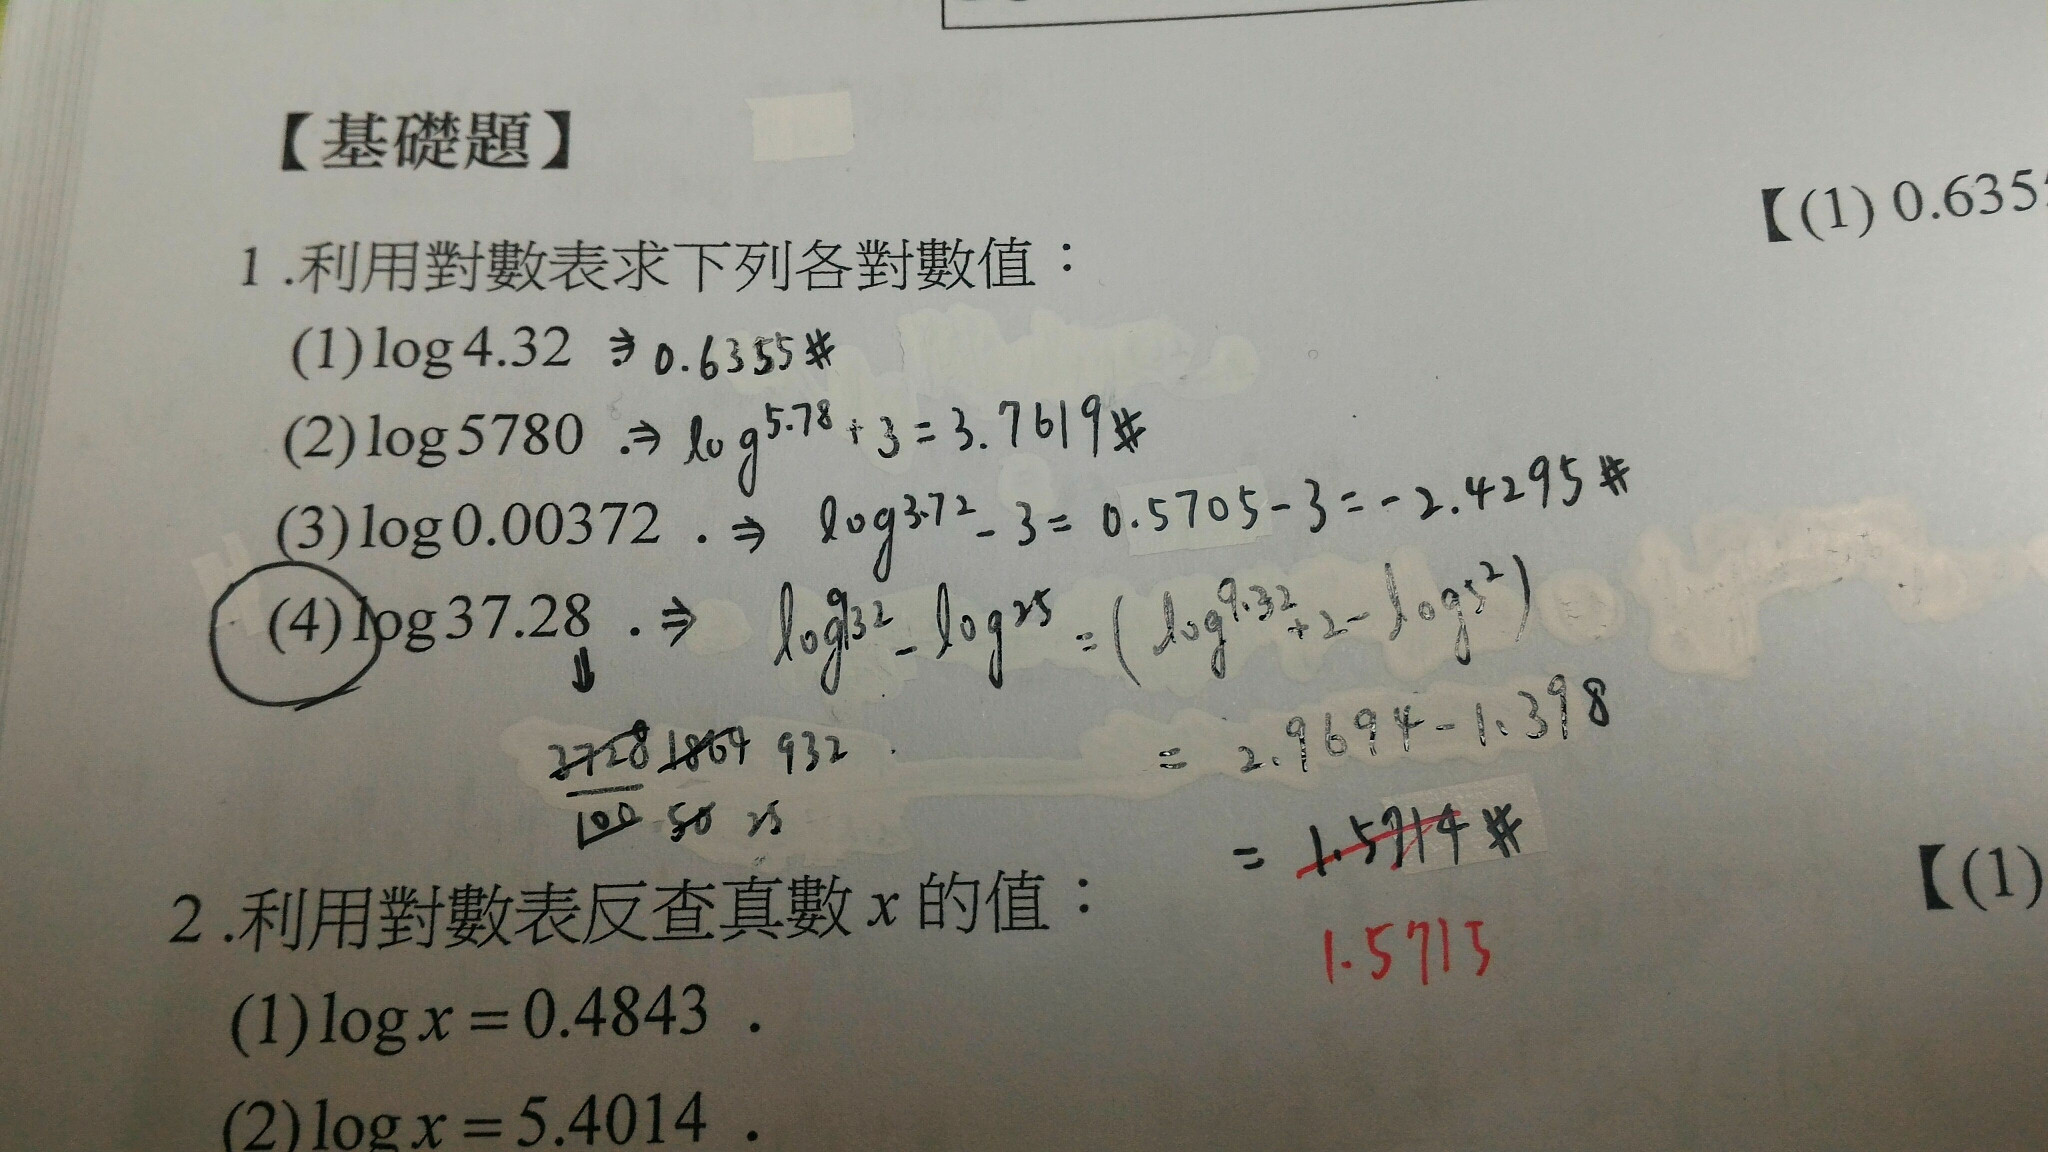 【基礎題】
【(1) 0.635
1 .利用對數表求下列各對數值：
(1) log 4.32 ⇒ 0.6355 #
(2) log 5780 . ⇒ log5.78 + 3 = 3.7619 #
(3) log 0.00372 . ⇒ log3.72 - 3 = 0.5705 - 3 = -2.4295 #
(4) log 37.28 . ⇒ log932 - log25 = (log9.32 + 2 - log5²)
⇓
3728 1864 932
100 50 25
= 2.9694 - 1.398
= 1.5714 #
1.5715
【(1)
2 .利用對數表反查真數 x 的值：
(1) log x = 0.4843 .
(2) log x = 5.4014 .